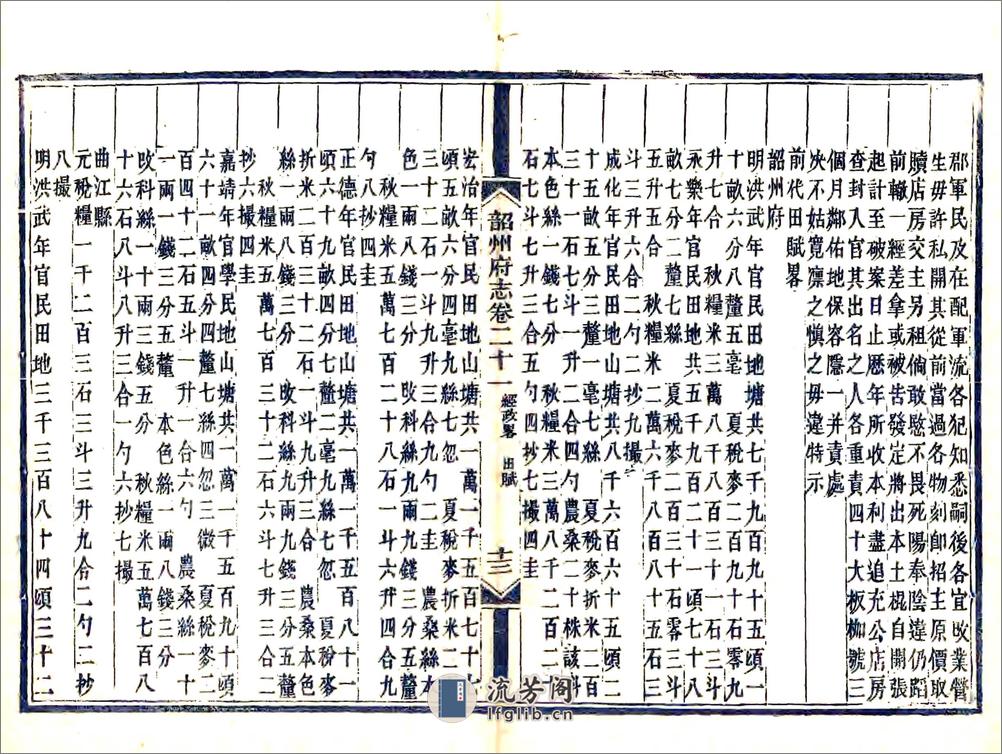 郡軍民及在配軍流各犯知悉嗣後各宜改業營
生毋許私開其從前當過各物刻卽招主原價取
贖店房交主另租倘敢愍不畏死陽奉陰違仍蹈
前轍一經差拿或被吿發定將出本土棍自開張
起計至破案日止歷年所收本利盡追充公店房
查封入官其出名之人各重責四十大板枷號三
個月鄰佑地保容隱一并責處
決不姑寬凛之愼之毋違特示
前代田賦畧
韶州府
明洪武年官民田地塘共七千九百九十五頃一
十畝六分八釐五毫 夏稅麥二百九十七石零九
升七合 秋糧米三萬八百三十一石七斗
永樂年官民田地共五千九百二十一頃七十八
畝七分二釐七絲 夏稅麥二百八十三石零三斗
五升三合 秋糧米二萬六千八百八升五石三
斗三升六合二勺二抄九撮
成化年官民田地山塘共一萬八千六百六十五頃二
十一畝五分三釐一毫七絲 夏稅麥折米二百
三十一石七斗一升二合四勺 農桑二十株該科
本色絲一錢七分 秋糧米三萬八千二百二十
石七斗七升三合五勺四抄七撮四圭
宏治年官民田地山塘共一萬一千五百七十一
頃五畝六分四毫九絲七忽 夏稅麥折米二百
三十二石一斗九升三合九勺二圭 農桑絲本
色一兩八錢三分 改科絲九兩九錢三分五釐
秋糧米五萬七百二十八石一斗六升四合九
勺八抄四圭
正德年官民田地山塘共一萬一千五百八十一
頃六十九畝四分七釐二毫九絲七忽 夏稅麥
折米二百三十二石一斗九升三合 農桑本色
絲一兩八錢三分 改科絲九兩九錢三分五釐
秋糧米五萬七百三十一石六斗七升三合二
抄六撮
嘉靖年官學民地山塘共一萬一千五百九十頃
六十三十畝四分四釐七絲四忽三微 夏稅麥二
百四十二石五斗一升一合六勺 農桑絲一十
一兩一錢三分五釐 本色絲一兩八錢三分
改科絲一十兩三錢五分 秋糧米五萬七百八
十六石八斗八升三合一勺六抄七撮
曲江縣
元稅糧一千二百三石三斗三升九合二勺二抄
八撮
明洪武年官民田地三千三百八十四頃三十二
韶州府志卷二十一 經政畧 田賦 十三
流芳阁
lfglib.cn